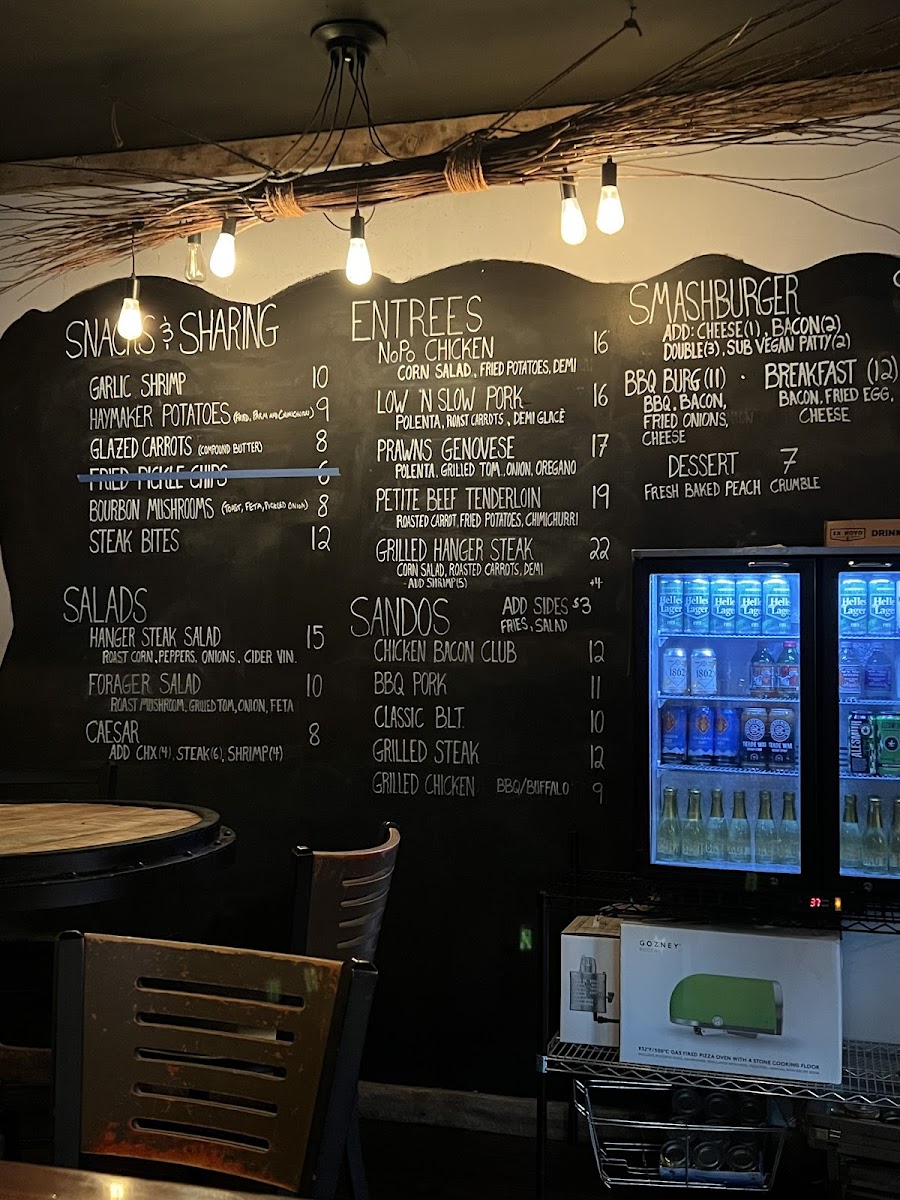 SNACKS & SHARING
GARLIC SHRIMP 10
HAYMAKER POTATOES (FRIED, PARM AND CHIMICHURRI) 9
GLAZED CARROTS (COMPOUND BUTTER) 8
FRIED PICKLE CHIPS 6
BOURBON MUSHROOMS (TOAST, FETA, PICKLED ONION) 8
STEAK BITES 12
SALADS
HANGER STEAK SALAD 15
ROAST CORN, PEPPERS, ONIONS, CIDER VIN.
FORAGER SALAD 10
ROAST MUSHROOM, GRILLED TOM, ONION, FETA
CAESAR 8
ADD CHX(4), STEAK(6), SHRIMP(4)
ENTREES
NoPo CHICKEN 16
CORN SALAD, FRIED POTATOES, DEMI
LOW 'N SLOW PORK 16
POLENTA, ROAST CARROTS, DEMI GLACÉ
PRAWNS GENOVESE 17
POLENTA, GRILLED TOM, ONION, OREGANO
PETITE BEEF TENDERLOIN 19
ROASTED CARROT, FRIED POTATOES, CHIMICHURRI
GRILLED HANGER STEAK 22
CORN SALAD, ROASTED CARROTS, DEMI
- ADD SHRIMP(5) +4
SANDOS ADD SIDES $3
FRIES, SALAD
CHICKEN BACON CLUB 12
BBQ PORK 11
CLASSIC B.L.T. 10
GRILLED STEAK 12
GRILLED CHICKEN BBQ/BUFFALO 9
SMASHBURGER
ADD: CHEESE(1), BACON(2)
DOUBLE(3), SUB VEGAN PATTY(2)
BBQ BURG (11) · BREAKFAST (12)
BBQ, BACON,
FRIED ONIONS,
CHEESE
BACON, FRIED EGG,
CHEESE
DESSERT 7
FRESH BAKED PEACH CRUMBLE
EX NOVO DRINK
Helles Lager Helles Lager Helles Lager Helles Lager Helles Lager
Helles Lager Helles Lager
1862 1862
ALESMITH
37
GOZNEY
932°F/500°C GAS FIRED PIZZA OVEN WITH A STONE COOKING FLOOR